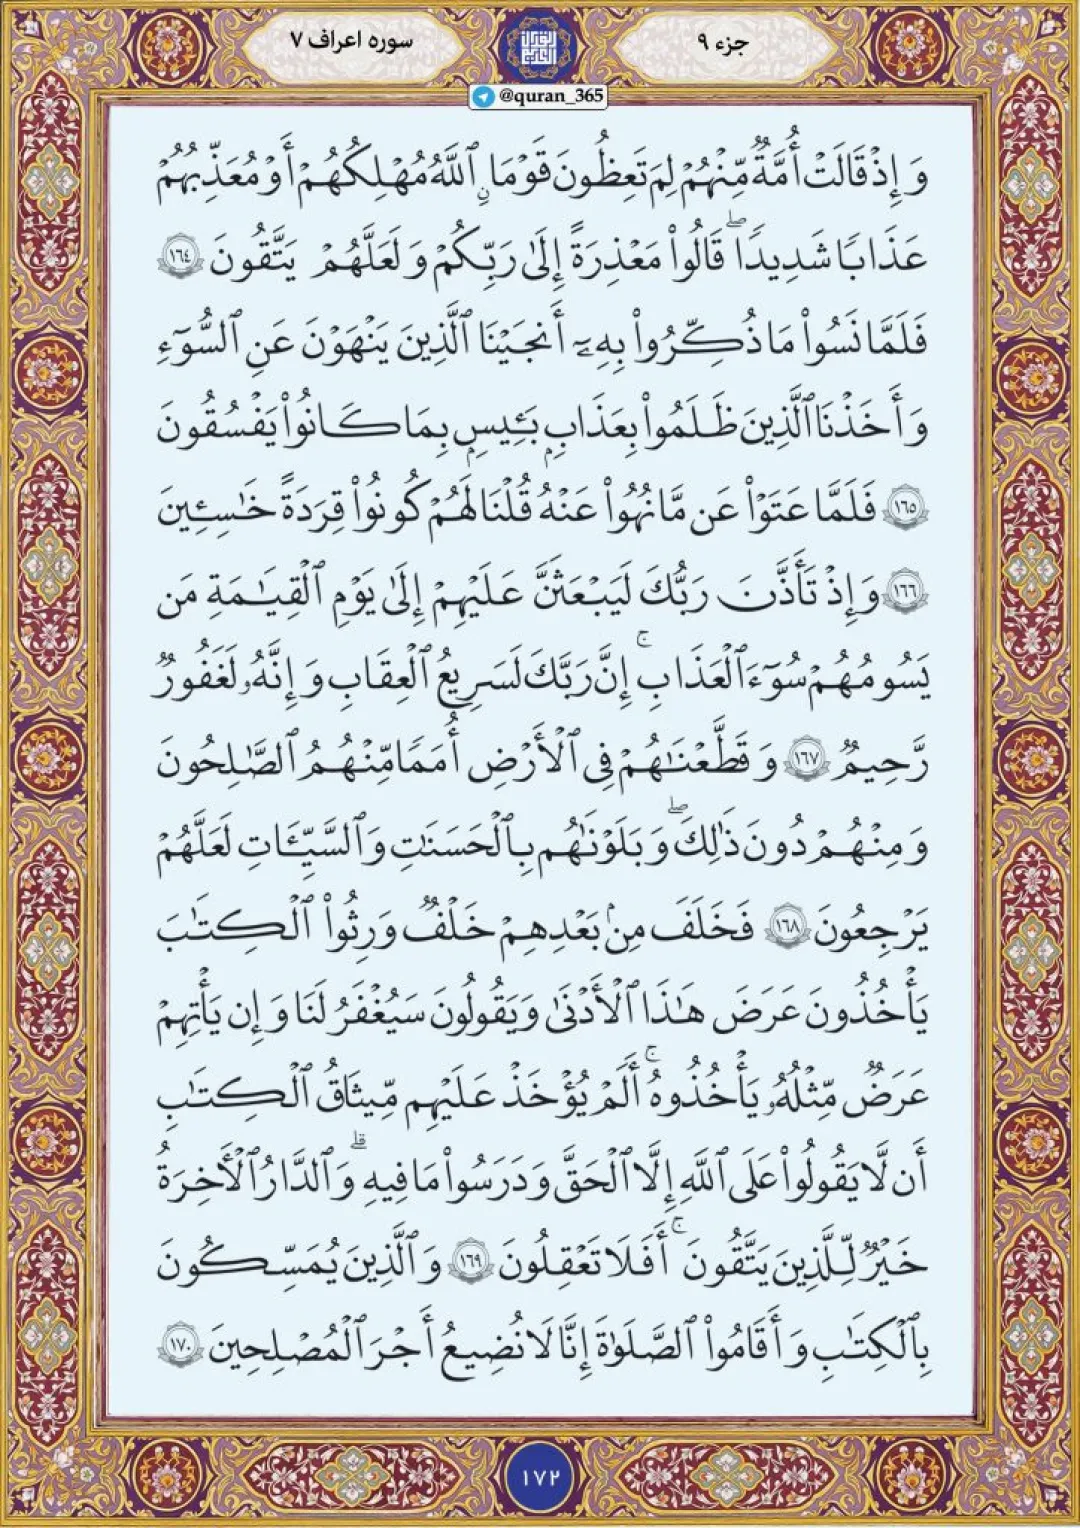 جزء ۹
سوره اعراف ۷
@quran_365
وَإِذْ قَالَتْ أُمَّةٌ مِّنْهُمْ لِمَ تَعِظُونَ قَوْمًا ٱللَّهُ مُهْلِكُهُمْ أَوْ مُعَذِّبُهُمْ
عَذَابًا شَدِيدًا ۖ قَالُوا۟ مَعْذِرَةً إِلَىٰ رَبِّكُمْ وَلَعَلَّهُمْ يَتَّقُونَ ١٦٤
فَلَمَّا نَسُوا۟ مَا ذُكِّرُوا۟ بِهِۦٓ أَنجَيْنَا ٱلَّذِينَ يَنْهَوْنَ عَنِ ٱلسُّوٓءِ
وَأَخَذْنَا ٱلَّذِينَ ظَلَمُوا۟ بِعَذَابٍۭ بَـِٔيسٍۭ بِمَا كَانُوا۟ يَفْسُقُونَ
١٦٥ فَلَمَّا عَتَوْا۟ عَن مَّا نُهُوا۟ عَنْهُ قُلْنَا لَهُمْ كُونُوا۟ قِرَدَةً خَـٰسِـِٔينَ
١٦٦ وَإِذْ تَأَذَّنَ رَبُّكَ لَيَبْعَثَنَّ عَلَيْهِمْ إِلَىٰ يَوْمِ ٱلْقِيَـٰمَةِ مَن
يَسُومُهُمْ سُوٓءَ ٱلْعَذَابِ ۗ إِنَّ رَبَّكَ لَسَرِيعُ ٱلْعِقَابِ وَإِنَّهُۥ لَغَفُورٌ
رَّحِيمٌ ١٦٧ وَقَطَّعْنَـٰهُمْ فِى ٱلْأَرْضِ أُمَمًا مِّنْهُمُ ٱلصَّـٰلِحُونَ
وَمِنْهُمْ دُونَ ذَٰلِكَ ۖ وَبَلَوْنَـٰهُم بِٱلْحَسَنَـٰتِ وَٱلسَّيِّـَٔاتِ لَعَلَّهُمْ
يَرْجِعُونَ ١٦٨ فَخَلَفَ مِنۢ بَعْدِهِمْ خَلْفٌ وَرِثُوا۟ ٱلْكِتَـٰبَ
يَأْخُذُونَ عَرَضَ هَـٰذَا ٱلْأَدْنَىٰ وَيَقُولُونَ سَيُغْفَرُ لَنَا وَإِن يَأْتِهِمْ
عَرَضٌ مِّثْلُهُۥ يَأْخُذُوهُ ۚ أَلَمْ يُؤْخَذْ عَلَيْهِم مِّيثَـٰقُ ٱلْكِتَـٰبِ
أَن لَّا يَقُولُوا۟ عَلَى ٱللَّهِ إِلَّا ٱلْحَقَّ وَدَرَسُوا۟ مَا فِيهِ ۗ وَٱلدَّارُ ٱلْـَٔاخِرَةُ
خَيْرٌ لِّلَّذِينَ يَتَّقُونَ ۚ أَفَلَا تَعْقِلُونَ ١٦٩ وَٱلَّذِينَ يُمَسِّكُونَ
بِٱلْكِتَـٰبِ وَأَقَامُوا۟ ٱلصَّلَوٰةَ إِنَّا لَا نُضِيعُ أَجْرَ ٱلْمُصْلِحِينَ ١٧٠
١٧٢